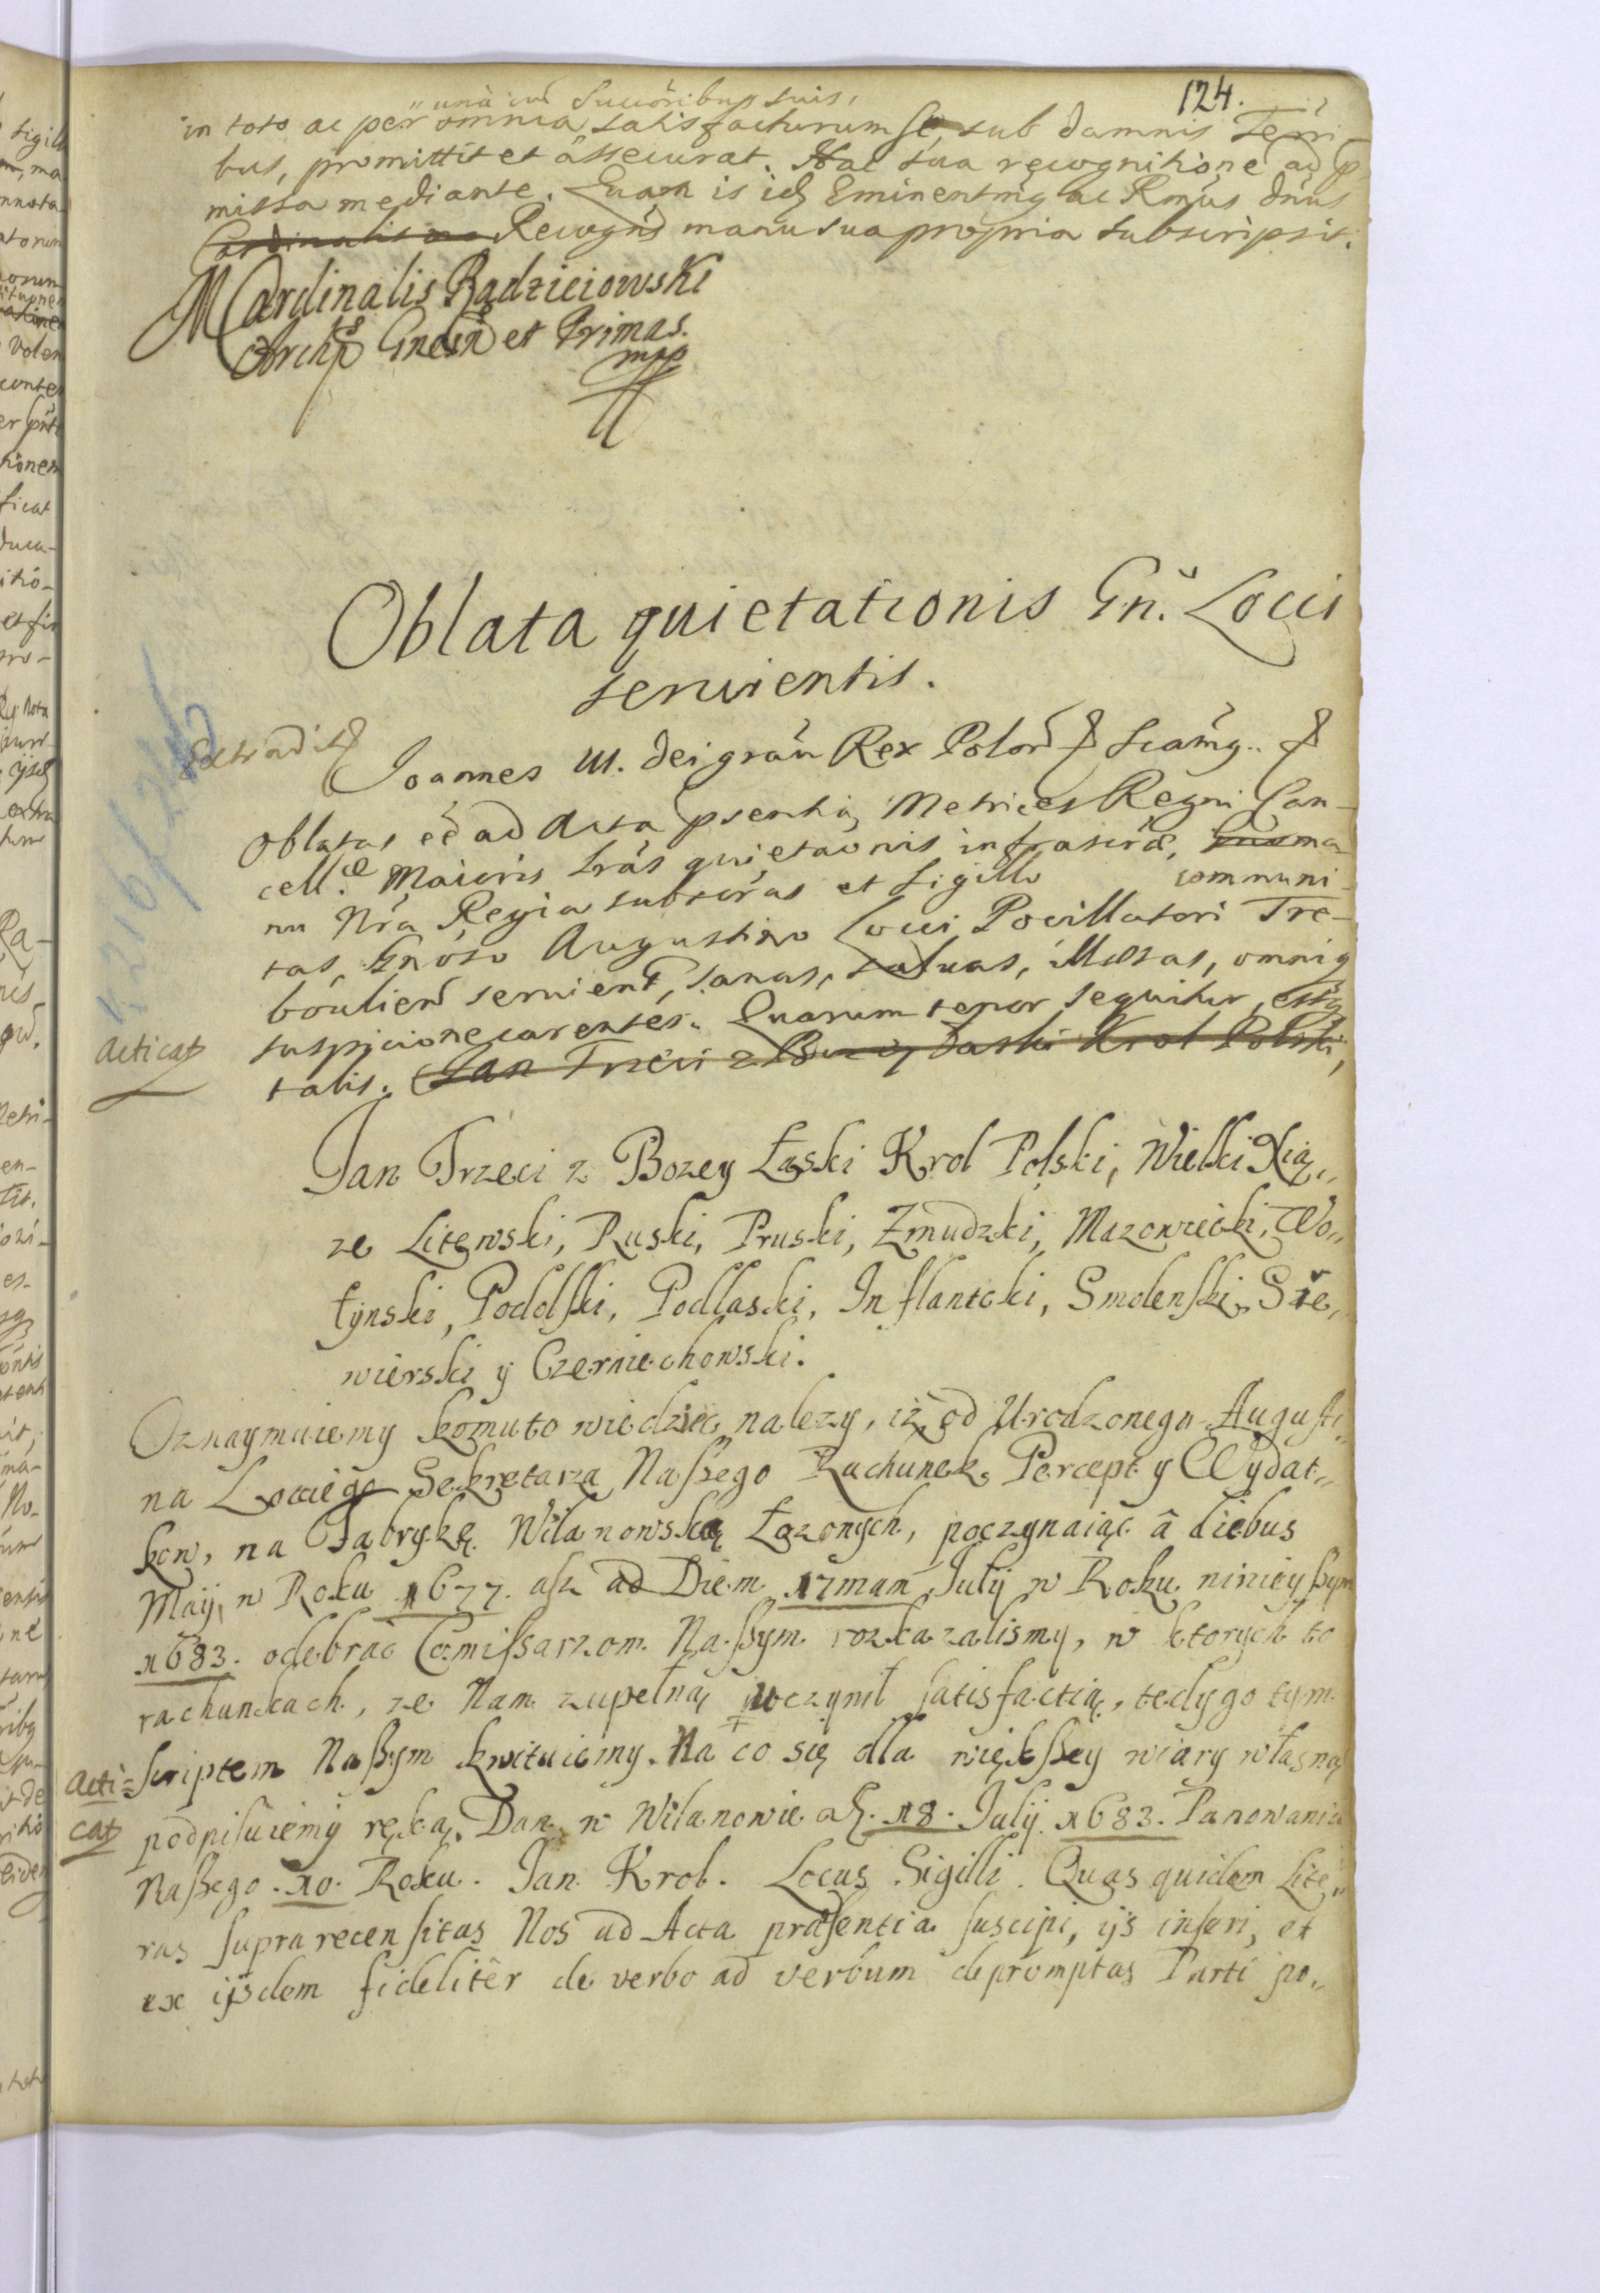 124.
una cum Succoribus suis,
in toto ac per omnia satisfacturum se, sub damnis Terri-
bus, promittit et assecurat. Hac sua recognitione ad p
missa mediante. Quam is id Eminentmg ac Rmus dnus
Cardinalis Recogns manu sua propria subscripsit.
M Cardinalis Radzieiowski
Archps Gnesn et Primas.
mpp
Oblata quietationis Gn. Locci
servientis.
Extradit
Joannes III. Dei gran Rex Polon Scamg..
Oblatas eē ad Acta psentia Metrices Regni Can-
cell.æ Maioris lrās quietaonis infrascrae, ma
nu Nra Regia subscras et sigillo communi-
tas, Gnoso Augustino Locci Pocillatori Tre-
boulien servient, sanas, saluas, illæsas, omnig
suspicione carentes. Quarum tenor sequitur, estq
talis. Jan Trzeci z Bozey Łaski Krol Polski,
acticat
Jan Trzeci z Bozey Łaski Krol Polski, Wielki Xią,,
ze Litewski, Ruski, Pruski, Zmudzki, Mazowiecki, Wo,,
łynski, Podolski, Podlaski, Inflantcki, Smolenski, Sie,,
wierski y Czerniechowski.
Oznaymuiemy komu to wiedziec nalezy, iz od Urodzonego Augusti,,
na Locciego Sekretarza Naszego Rachunek, Percept y Wydat,,
kow, na Fabrykę Wilanowską Łozonych, poczynaiąc â diebus
Maij, w Roku 1677. asz ad Diem 17 man Julij w Roku ninieyszym
1683. odebrać Comissarzom Naszym rozkazalismy, w ktorych to
rachunkach, ze Nam zupełną uczynił satisfactią, tedy go tym
acti- scriptem Naszym kwituiemy. Na co się dla większey wiary własną
cat podpisuiemy ręką. Dan w Wilanowie d. 18. Julij 1683. Panowania
Naszego 10. Roku. Jan Krol. Locus Sigilli. Quas quidem Lite,,
ras supra recensitas Nos ad Acta præsentia suscipi, ijs inseri, et
ex ijsdem fideliter de verbo ad verbum depromptas Parti po,,